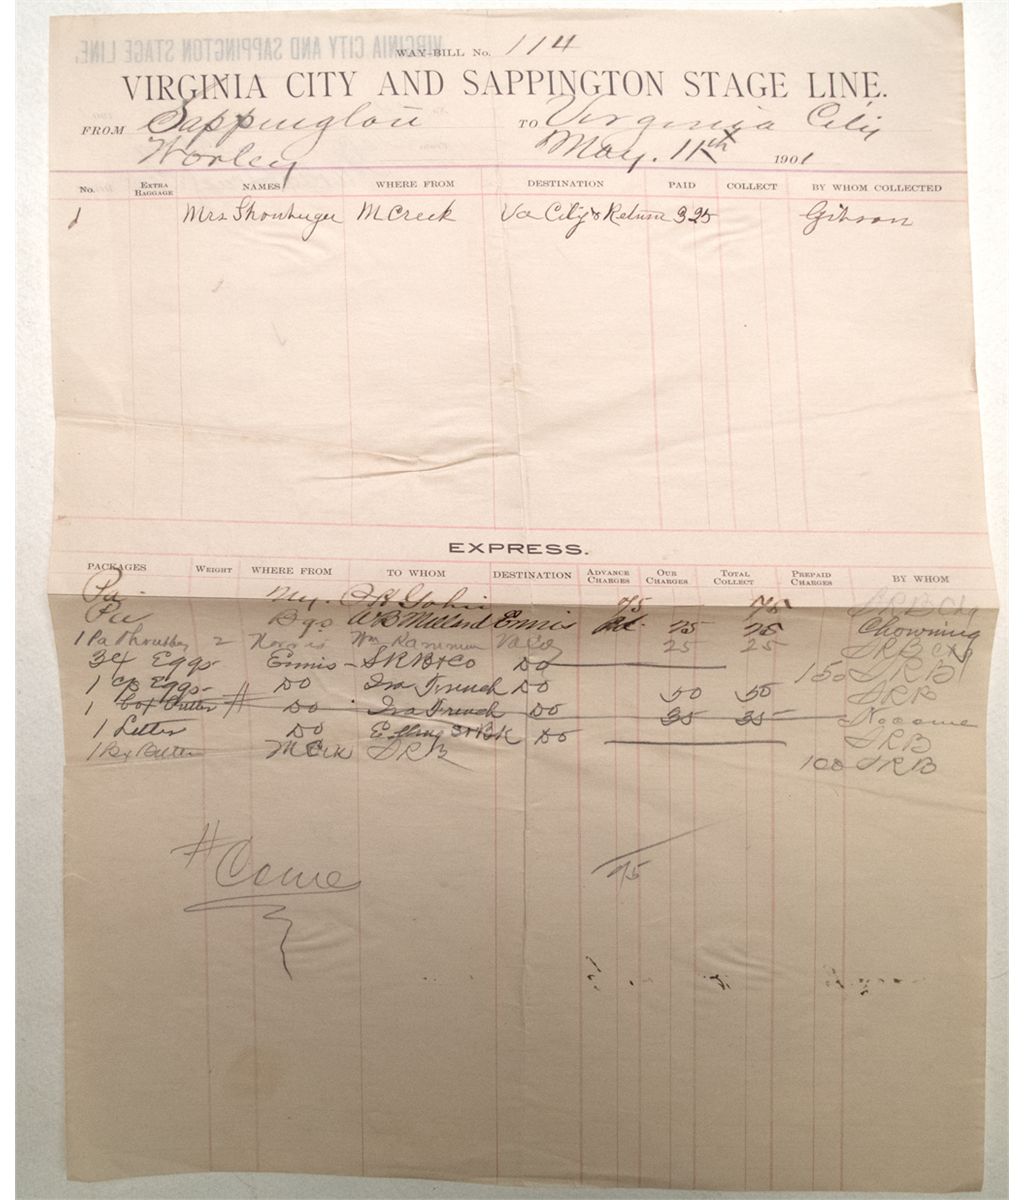 VIRGINIA CITY AND SAPPINGTON STAGE LINE.
WAY-BILL No. 114
VIRGINIA CITY AND SAPPINGTON STAGE LINE.
FROM Sappington TO Virginia City
Worley May. 11th 1901
No. EXTRA BAGGAGE NAMES WHERE FROM DESTINATION PAID COLLECT BY WHOM COLLECTED
1 Mrs M Creek Va City & Return 3 25 Gibson
EXPRESS.
PACKAGES WEIGHT WHERE FROM TO WHOM DESTINATION ADVANCE CHARGES OUR CHARGES TOTAL COLLECT PREPAID CHARGES BY WHOM
Pa. 75 75 S R B
Bgs Ennis Pd. 25 25 Chowning
1 Pa 2 Norris Wm Va Cy 25 25 S R B
Eggs Ennis S R B & Co Do 150 S R B
1 Eggs Do Ira French Do 50 50 S R B
1 Box Butter # Do Ira French Do 35 35 No come
1 Letter Do Do S R B
1 Bx Butter M Crk S R B 100 S R B
# Come 75